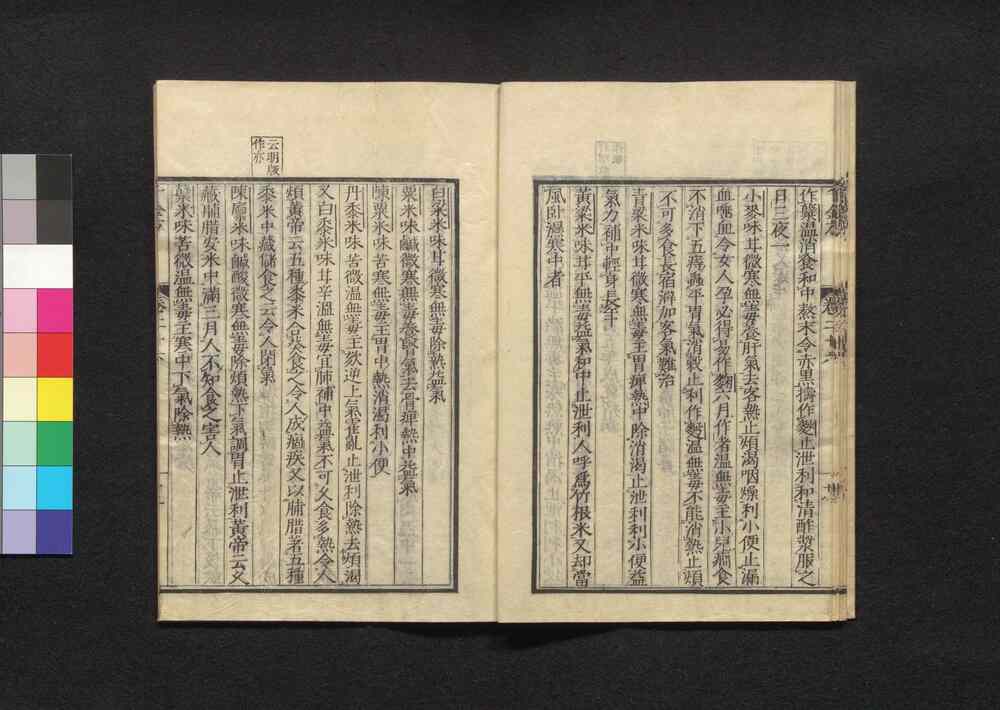 作糵溫消食和中熬末令赤黒擣作麨止泄利和清酢漿服之
日三夜一
小麥味甘微寒無毒養肝氣去客熱止煩渴咽燥利小便止漏
血唾血令女人孕必得易作麴六月作者溫無毒主小兒癇食
不消下五痔蟲平胃氣消穀止利作麵溫無毒不能消熱止煩
不可多食長宿澼加客氣難治
青粱米味甘微寒無毒主胃痺熱中除消渴止泄利利小便益
氣力補中輕身長年
黃粱米味甘平無毒益氣和中止泄利人呼爲竹根米又却當
風卧濕寒中者
云明版
作亦
白粱米味甘微寒無毒除熱益氣
粟米味鹹微寒無毒養腎氣去骨痺熱中益氣
陳粟米味苦寒無毒主胃中熱消渴利小便
丹黍米味苦微溫無毒主欬逆上氣霍亂止泄利除熱去煩渴
又白黍米味甘辛溫無毒宜肺補中益氣不可久食多熱令人
煩黃帝云五種黍米合葵食之令人成痼疾又以脯腊著五種
黍米中藏儲食之云令人閉氣
陳廩米味鹹酸微寒無毒除煩熱下氣調胃止泄利黃帝云久
藏脯腊安米中滿三月人不知食之害人
糵米味苦微溫無毒主寒中下氣除熱